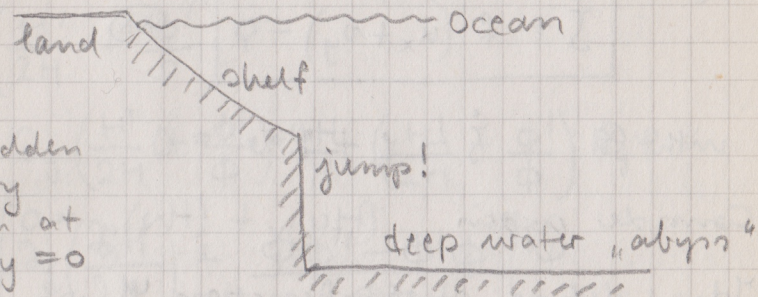 land
ocean
shelf
dden
y
at
y = 0
jump!
deep water „abyss“